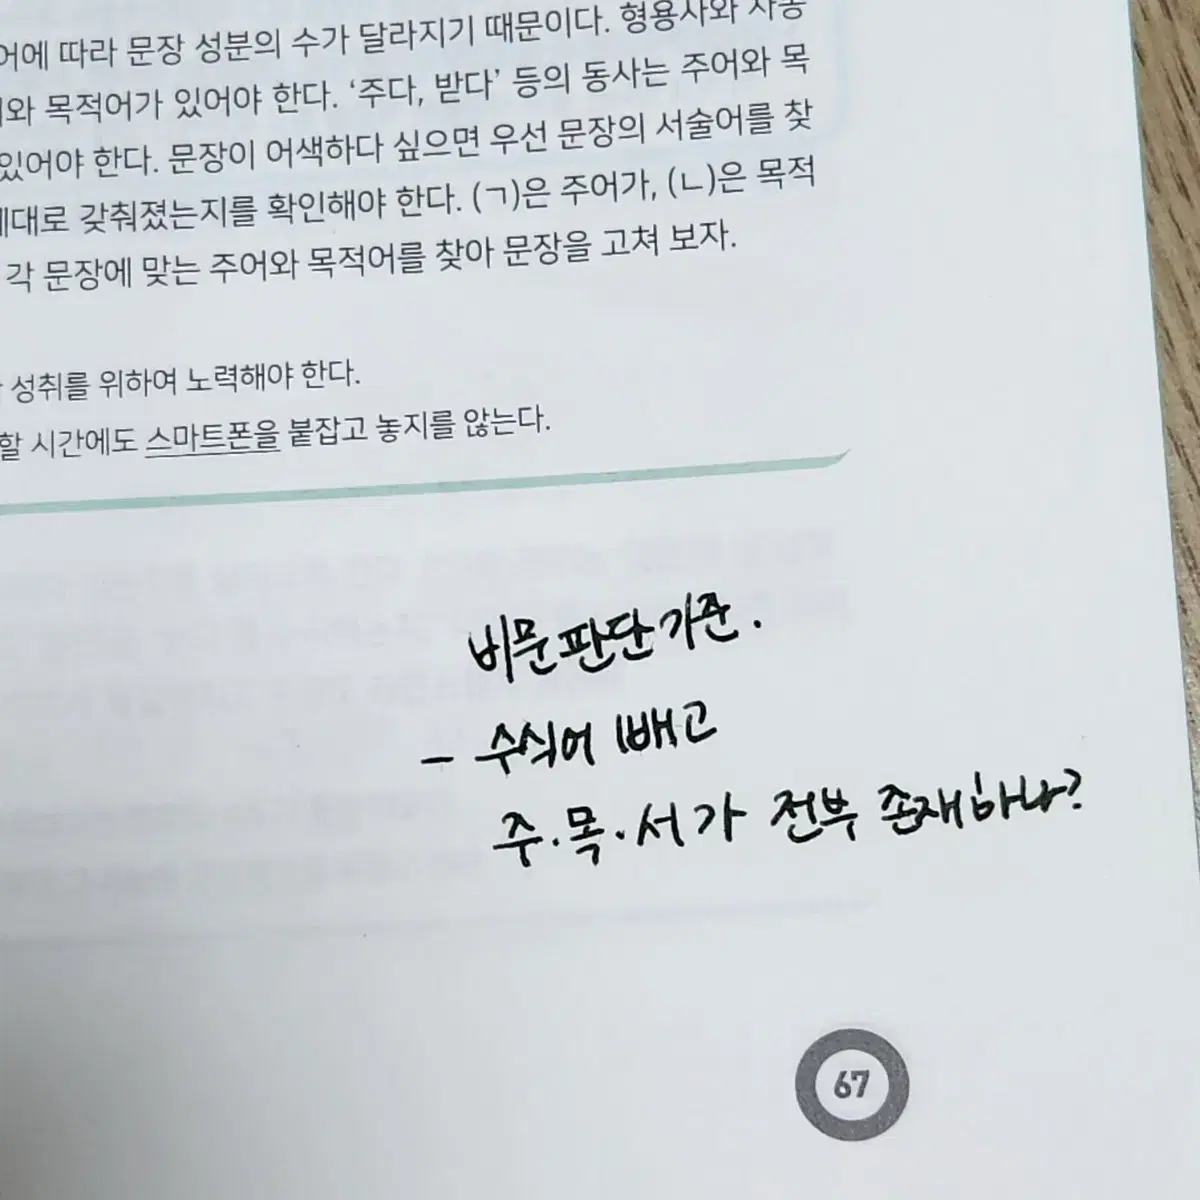 어에 따라 문장 성분의 수가 달라지기 때문이다. 형용사와 자동
와 목적어가 있어야 한다. ‘주다, 받다’ 등의 동사는 주어와 목
있어야 한다. 문장이 어색하다 싶으면 우선 문장의 서술어를 찾
제대로 갖춰졌는지를 확인해야 한다. (ㄱ)은 주어가, (ㄴ)은 목적
각 문장에 맞는 주어와 목적어를 찾아 문장을 고쳐 보자.
성취를 위하여 노력해야 한다.
할 시간에도 스마트폰을 붙잡고 놓지를 않는다.
비문 판단 기준.
- 수식어 빼고
주·목·서가 전부 존재하나?
67